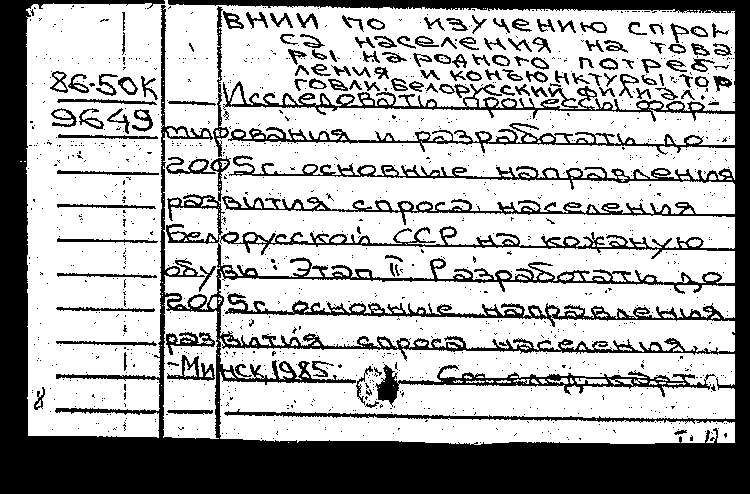 ВНИИ по изучению спро-
са населения на това
ры народного потреб-
ления и конъюнктуры тор
говли, Белорусский филиал.
86-50К
Исследовать процессы фор-
9649
мирования и разработать до
2005г. основные направления
развития спроса населения
Белорусской ССР на кожаную
обувь: Этап II Разработать до
2005г. основные направления
развития спроса населения...
-Минск, 1985.
См. след. карт.
Т. П.